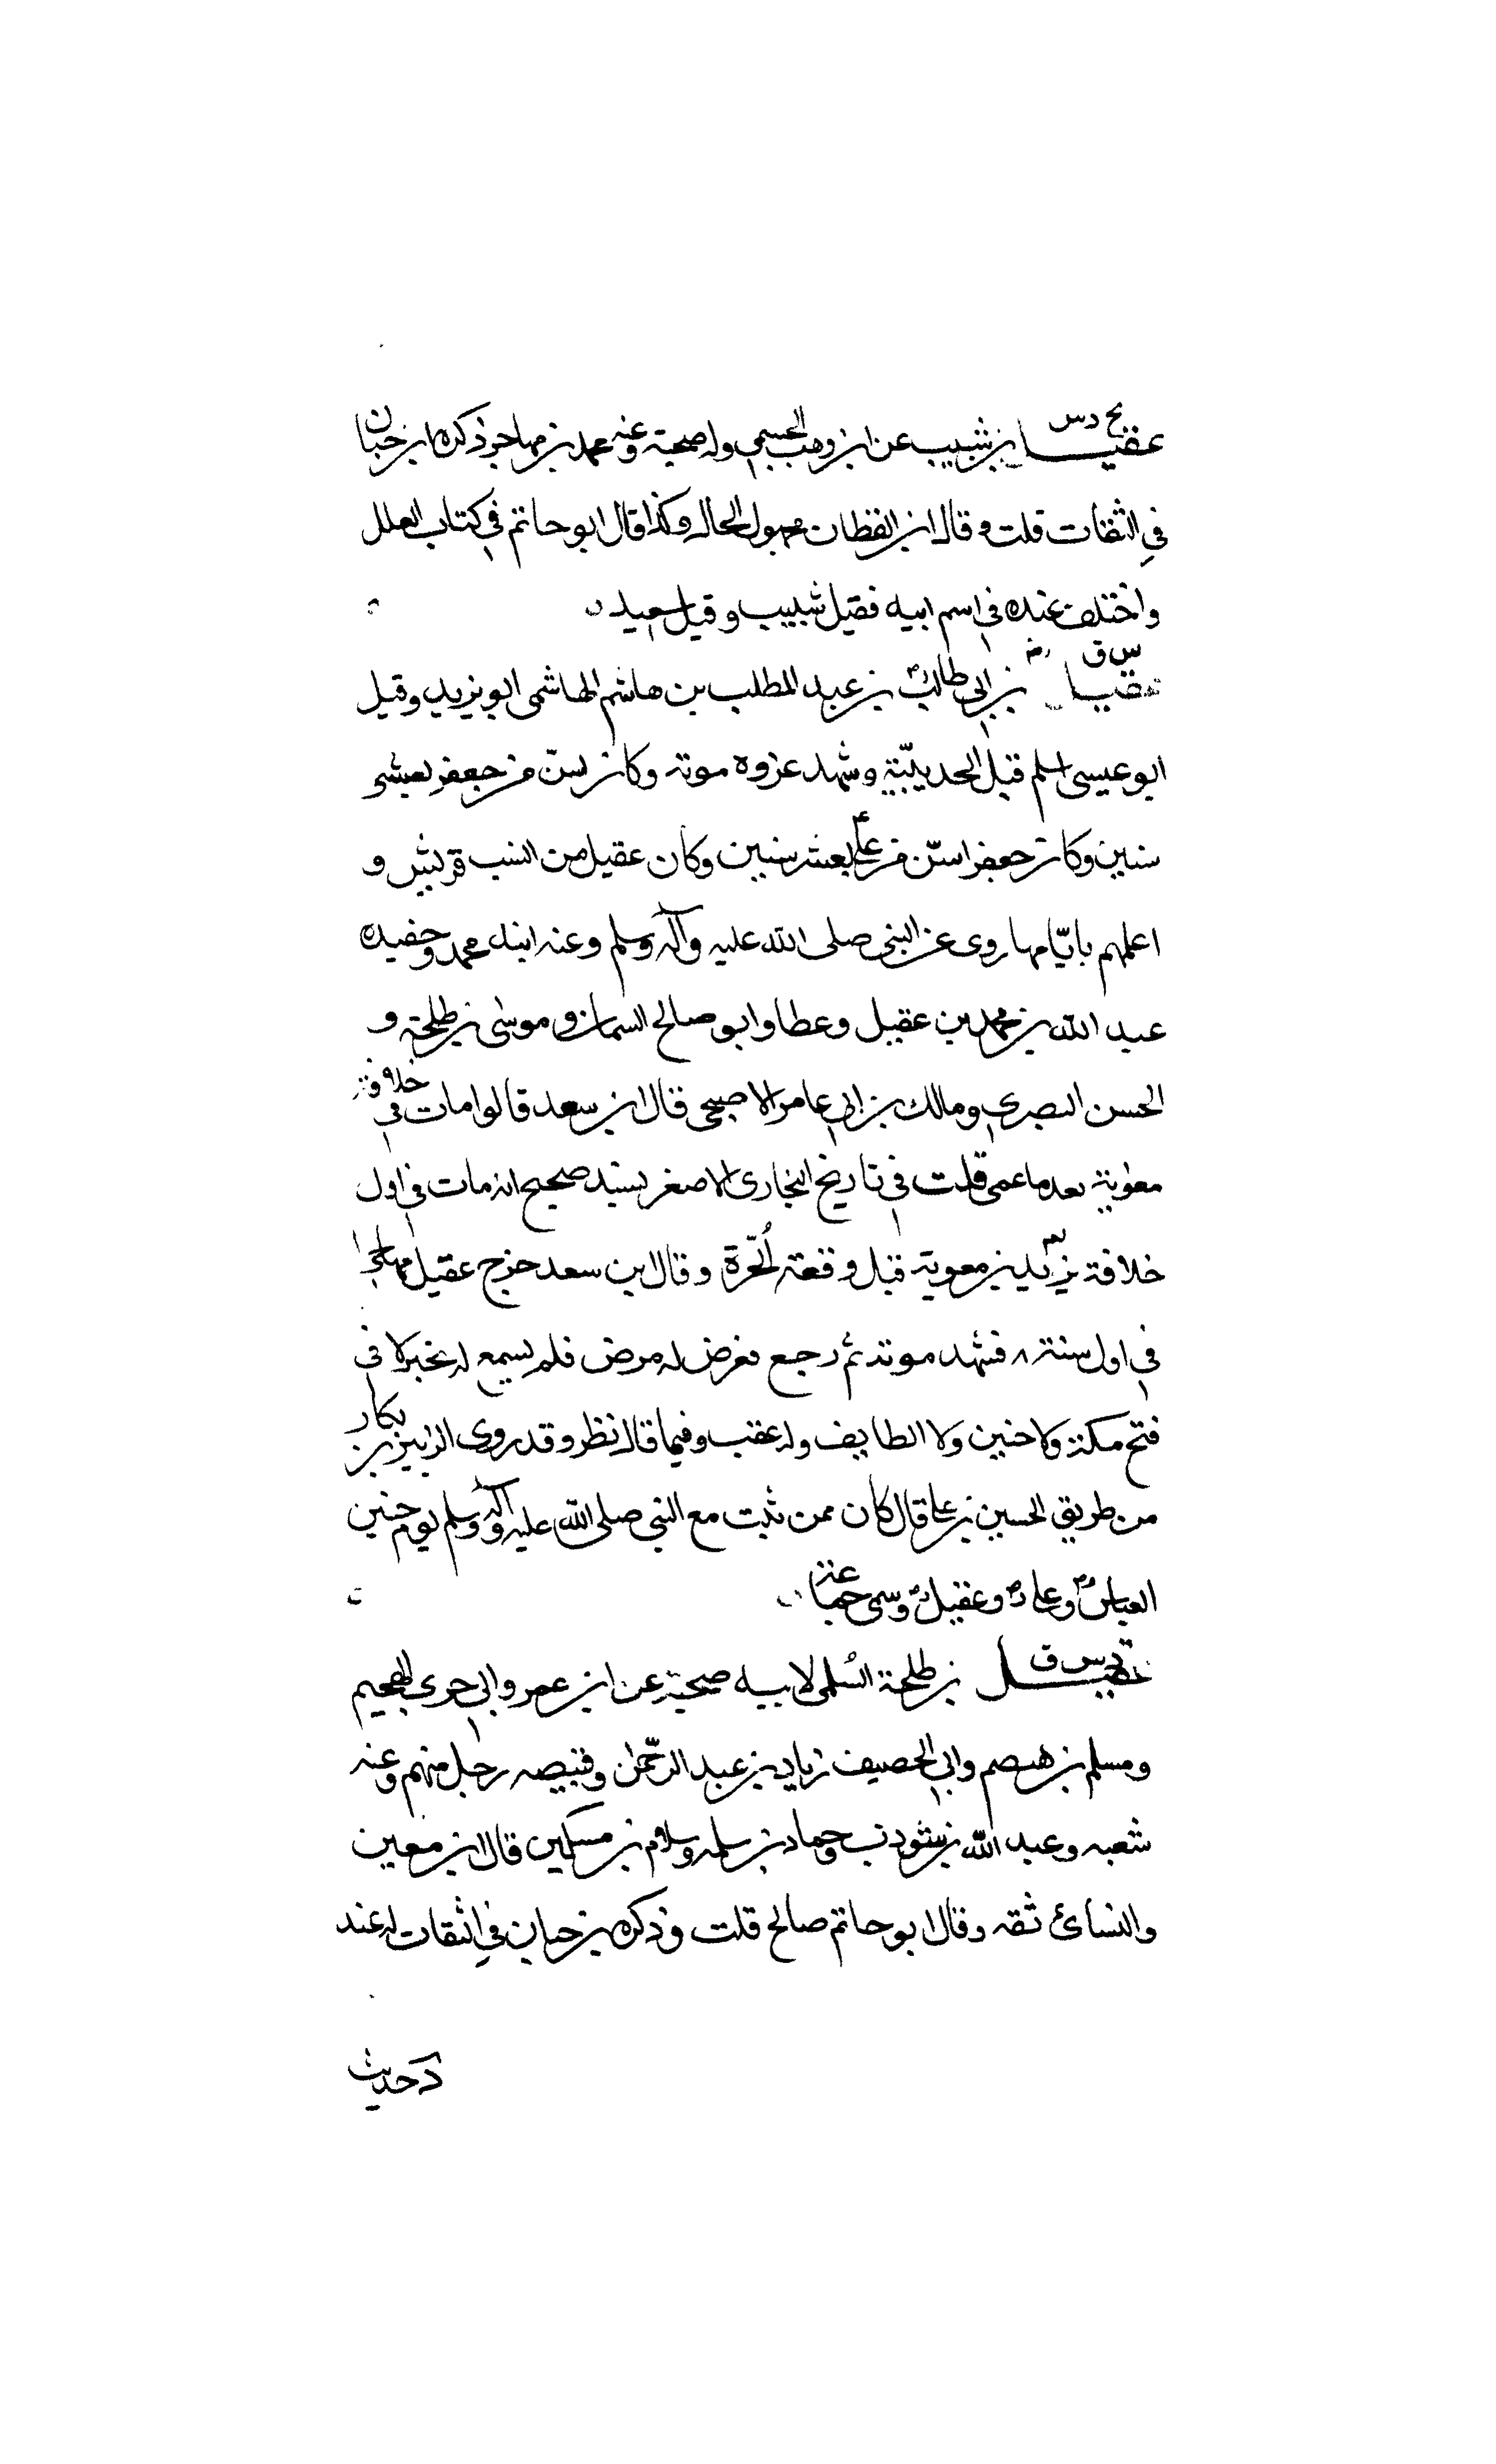 بخ د س
عقيل بن شبيب عن ابن وهب الجشمي وله صحبة وعنه محمد بن مهاجر ذكره ابن حبان
في الثقات قلت وقال ابن القطان مجهول الحال وكذا قال ابو حاتم في كتاب العلل
واختلف عنده في اسم ابيه فقيل شبيب وقيل سعيد
س ق
عقيل بن ابي طالب بن عبد المطلب بن هاشم الهاشمي ابو يزيد وقيل
ابو عيسى اسلم قبل الحديبيّة وشهد غزوه موته وكان اسنّ من جعفر بعشر
سنين وكان جعفر اسنّ من علي بعشر سنين وكان عقيل من انسب قريش و
اعلمهم بايّامها روى عن النبي صلى الله عليه وآله وسلم وعنه ابنه محمد وحفيده
عبد الله بن محمد بن عقيل وعطا وابو صالح السمان وموسى بن طلحة و
الحسن البصري ومالك بن ابي عامر الاصبحي قال ابن سعد قالوا مات في خلافة
معوية بعد ما عمى قلت في تاريخ البخاري الاصغر بسند صحيح انه مات في اول
خلافة يزيد بن معوية قبل وقعة الحَرّة وقال ابن سعد خرج عقيل مهاجرا
في اول سنة ٨ فشهد موته ثم رجع فعرض له مرض فلم يسمع له بخبر لا في
فتح مكة ولا حنين ولا الطايف وله عقب وفيما قال نظر وقد روى الزبير بن بكار
من طريق الحسين بن علي قال كان ممن ثبت مع النبي صلى الله عليه وآله وسلم يوم حنين
العباس وعلي وعقيل وسمى جماعة
د س ق
عقيل بن طلحة السُلمي لابيه صحبة عن ابن عمر وابي جري الهجيمي
ومسلم بن هيصم وابي الخصيف زياد بن عبد الرحمٰن وقبيصه رجل منهم وعنه
شعبه وعبد الله بن شوذب وحماد بن سلمه وسلام بن مسكين قال ابن معين
والنسائ ثقه وقال ابو حاتم صالح قلت وذكره بن حبان في الثقات له عند
د حديث